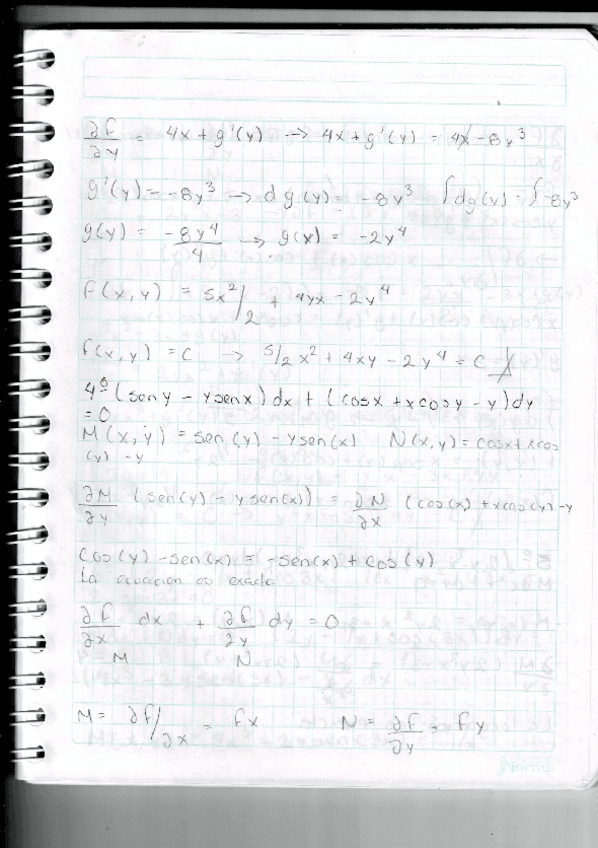 ∂f/∂y = 4x + g'(y) → 4x + g'(y) = 4x - 8y³
g'(y) = -8y³ → dg(y) = -8y³ ∫dg(y) = ∫-8y³
g(y) = -8y⁴/4 → g(x) = -2y⁴
f(x,y) = 5x²/2 + 4yx - 2y⁴
f(x,y) = C → 5/2 x² + 4xy - 2y⁴ = C
4° (sen y - y sen x) dx + (cos x + x cos y - y) dy
= 0
M(x,y) = sen(y) - y sen(x) N(x,y) = cos x + x cos
(y) - y
∂M/∂y (sen(y) - y sen(x)) = ∂N/∂x (cos(x) + x cos(y) - y
cos(y) - sen(x) = -sen(x) + cos(y)
La ecuacion es exacta
∂f/∂x dx + ∂f/∂y dy = 0
M N
M = ∂f/∂x = fx N = ∂f/∂y = fy